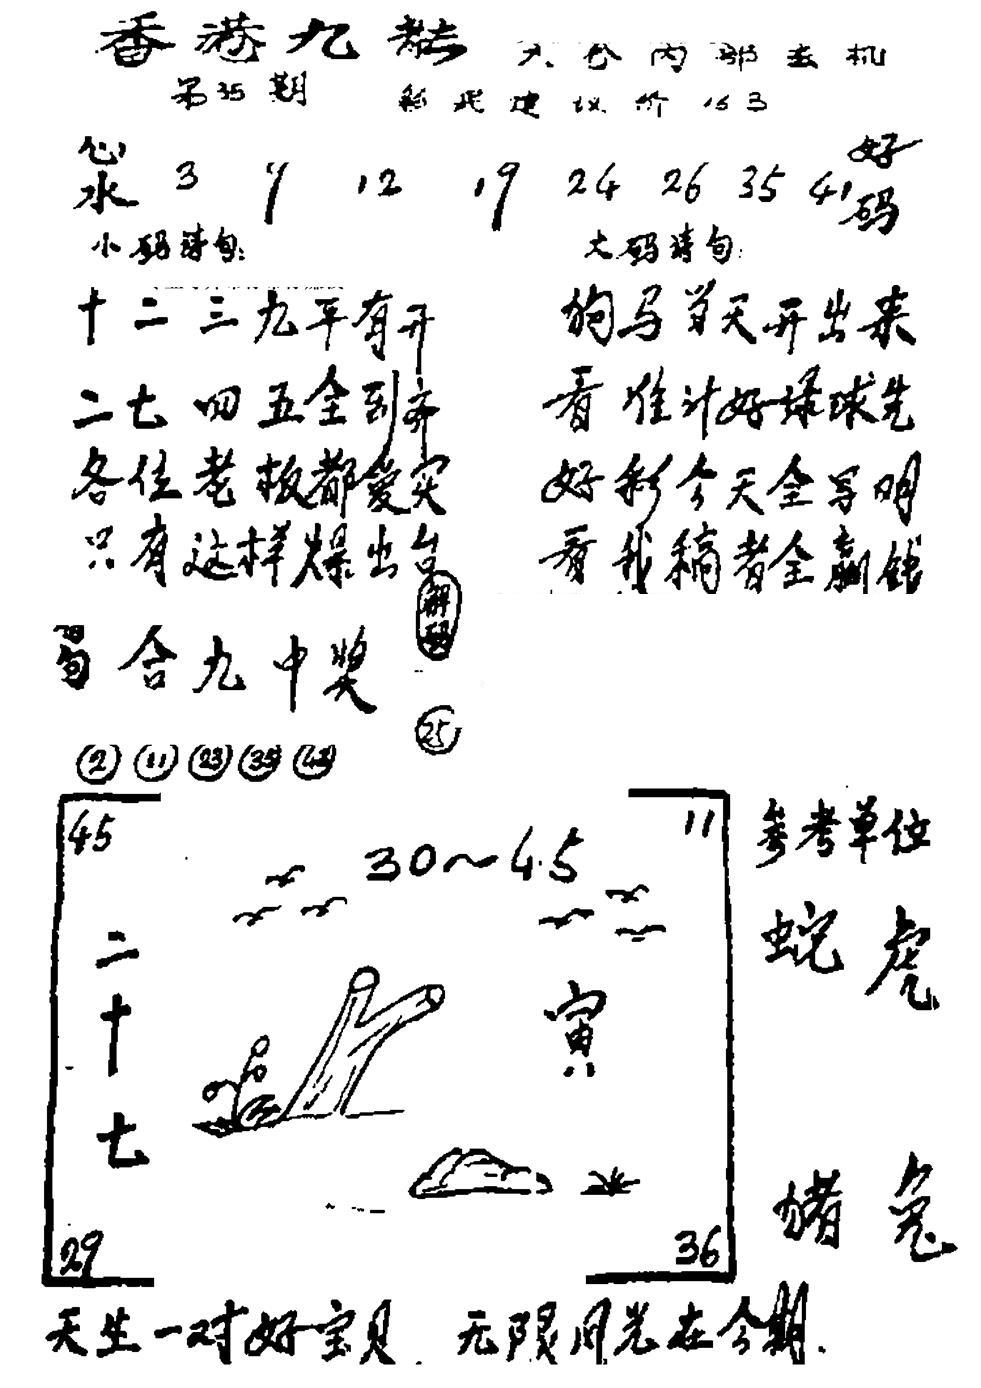 香港九龙 六合内部玄机
第35期 彩民建议价16马
心水 3 9 12 19 24 26 35 41 好码
小码诗句: 大码诗句:
十二三九平有开
二七四五全到齐
各位老板都爱买
只有这样爆出台
狗马首天开出来
看准计好绿球先
好彩今天全写明
看我稿者全赢钱
解码
合九中奖
25
2 11 23 35 43
45 11
30～45
二十七
寅
29 36
参考单位
蛇虎
猪兔
天生一对好宝贝 无限风光在今期.